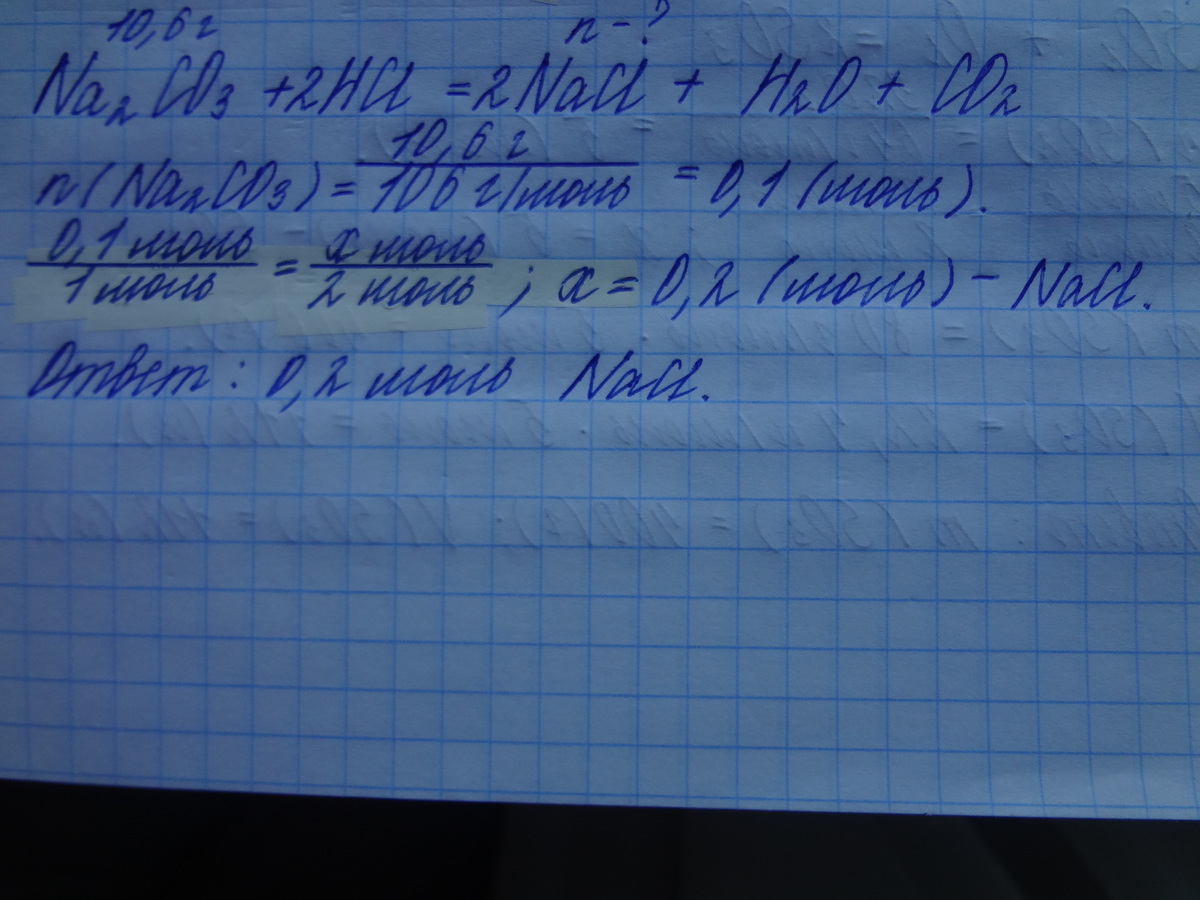 10,6 г n - ?
Na₂CO₃ + 2HCl = 2NaCl + H₂O + CO₂
n(Na₂CO₃) = 10,6 г / 106 г/моль = 0,1 (моль).
0,1 моль / 1 моль = x моль / 2 моль ; x = 0,2 (моль) - NaCl.
Ответ: 0,2 моль NaCl.